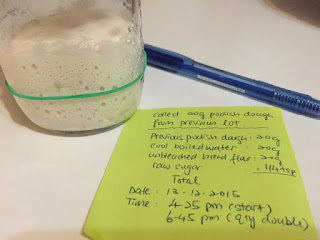 collect 20g poolish dough
from previous lot
Previous poolish dough : 20g
cool boiled water : 20g
unbleached bread flour : 20g
raw sugar : 1/4 tsp
Total
Date : 13-12-2015
Time : 4-25 pm (start)
6-45 pm (
double)